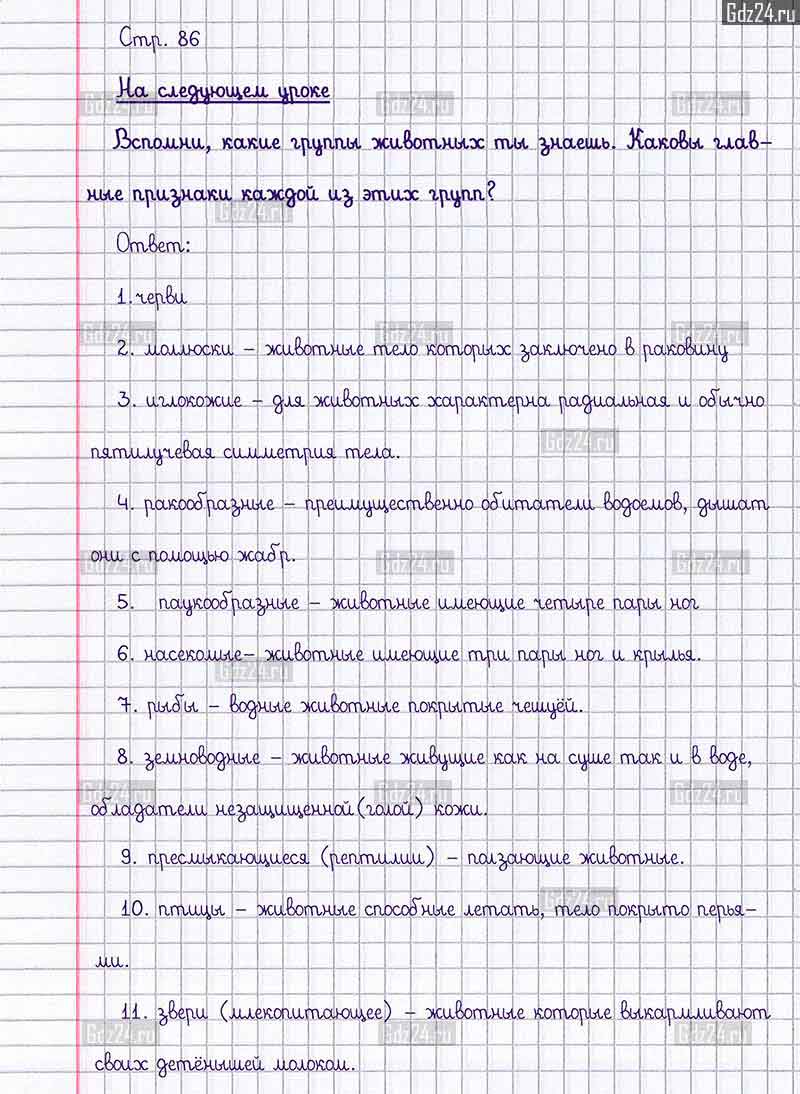 Gdz24.ru
Стр. 86
На следующем уроке
Вспомни, какие группы животных ты знаешь. Каковы глав-
ные признаки каждой из этих групп?
Ответ:
1. черви
2. моллюски – животные тело которых заключено в раковину
3. иглокожие – для животных характерна радиальная и обычно
пятилучевая симметрия тела.
4. ракообразные – преимущественно обитатели водоемов, дышат
они с помощью жабр.
5. паукообразные – животные имеющие четыре пары ног
6. насекомые– животные имеющие три пары ног и крылья.
7. рыбы – водные животные покрытые чешуёй.
8. земноводные – животные живущие как на суше так и в воде,
обладатели незащищенной (голой) кожи.
9. пресмыкающиеся (рептилии) – ползающие животные.
10. птицы – животные способные летать, тело покрыто перья-
ми.
11. звери (млекопитающее) – животные которые выкармливают
своих детёнышей молоком.